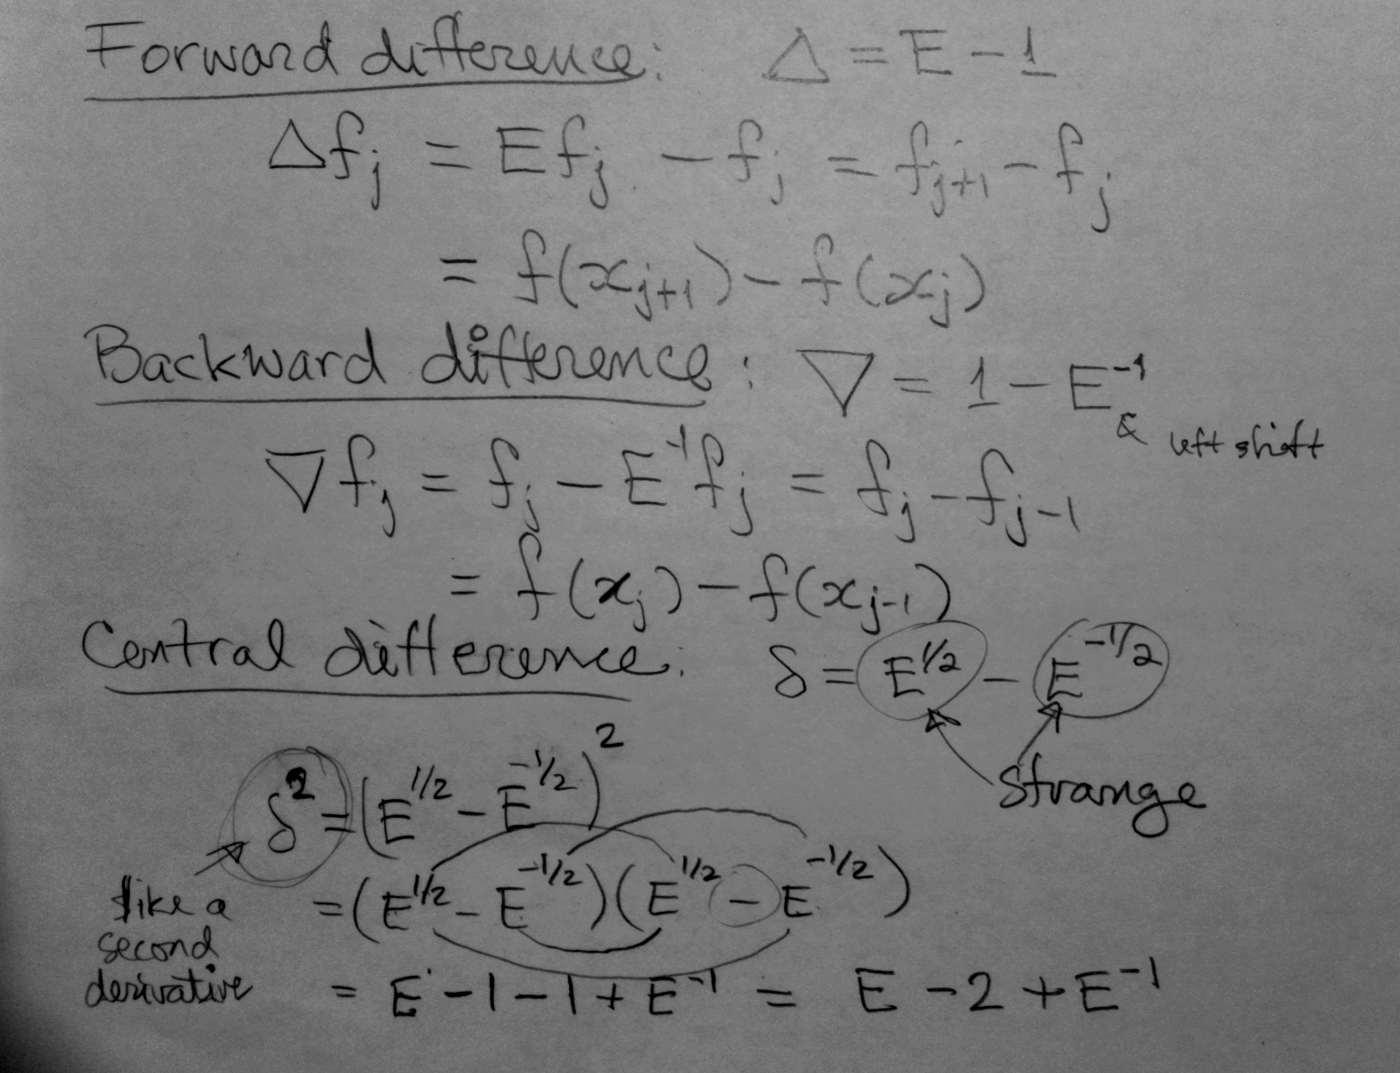 Forward difference: Δ = E - 1
Δf_j = Ef_j - f_j = f_{j+1} - f_j
= f(x_{j+1}) - f(x_j)
Backward difference: ∇ = 1 - E^{-1}
& left shift
∇f_j = f_j - E^{-1}f_j = f_j - f_{j-1}
= f(x_j) - f(x_{j-1})
Central difference: δ = E^{1/2} - E^{-1/2}
strange
δ^2 = (E^{1/2} - E^{-1/2})^2
= (E^{1/2} - E^{-1/2})(E^{1/2} - E^{-1/2})
like a
second
derivative
= E - 1 - 1 + E^{-1} = E - 2 + E^{-1}